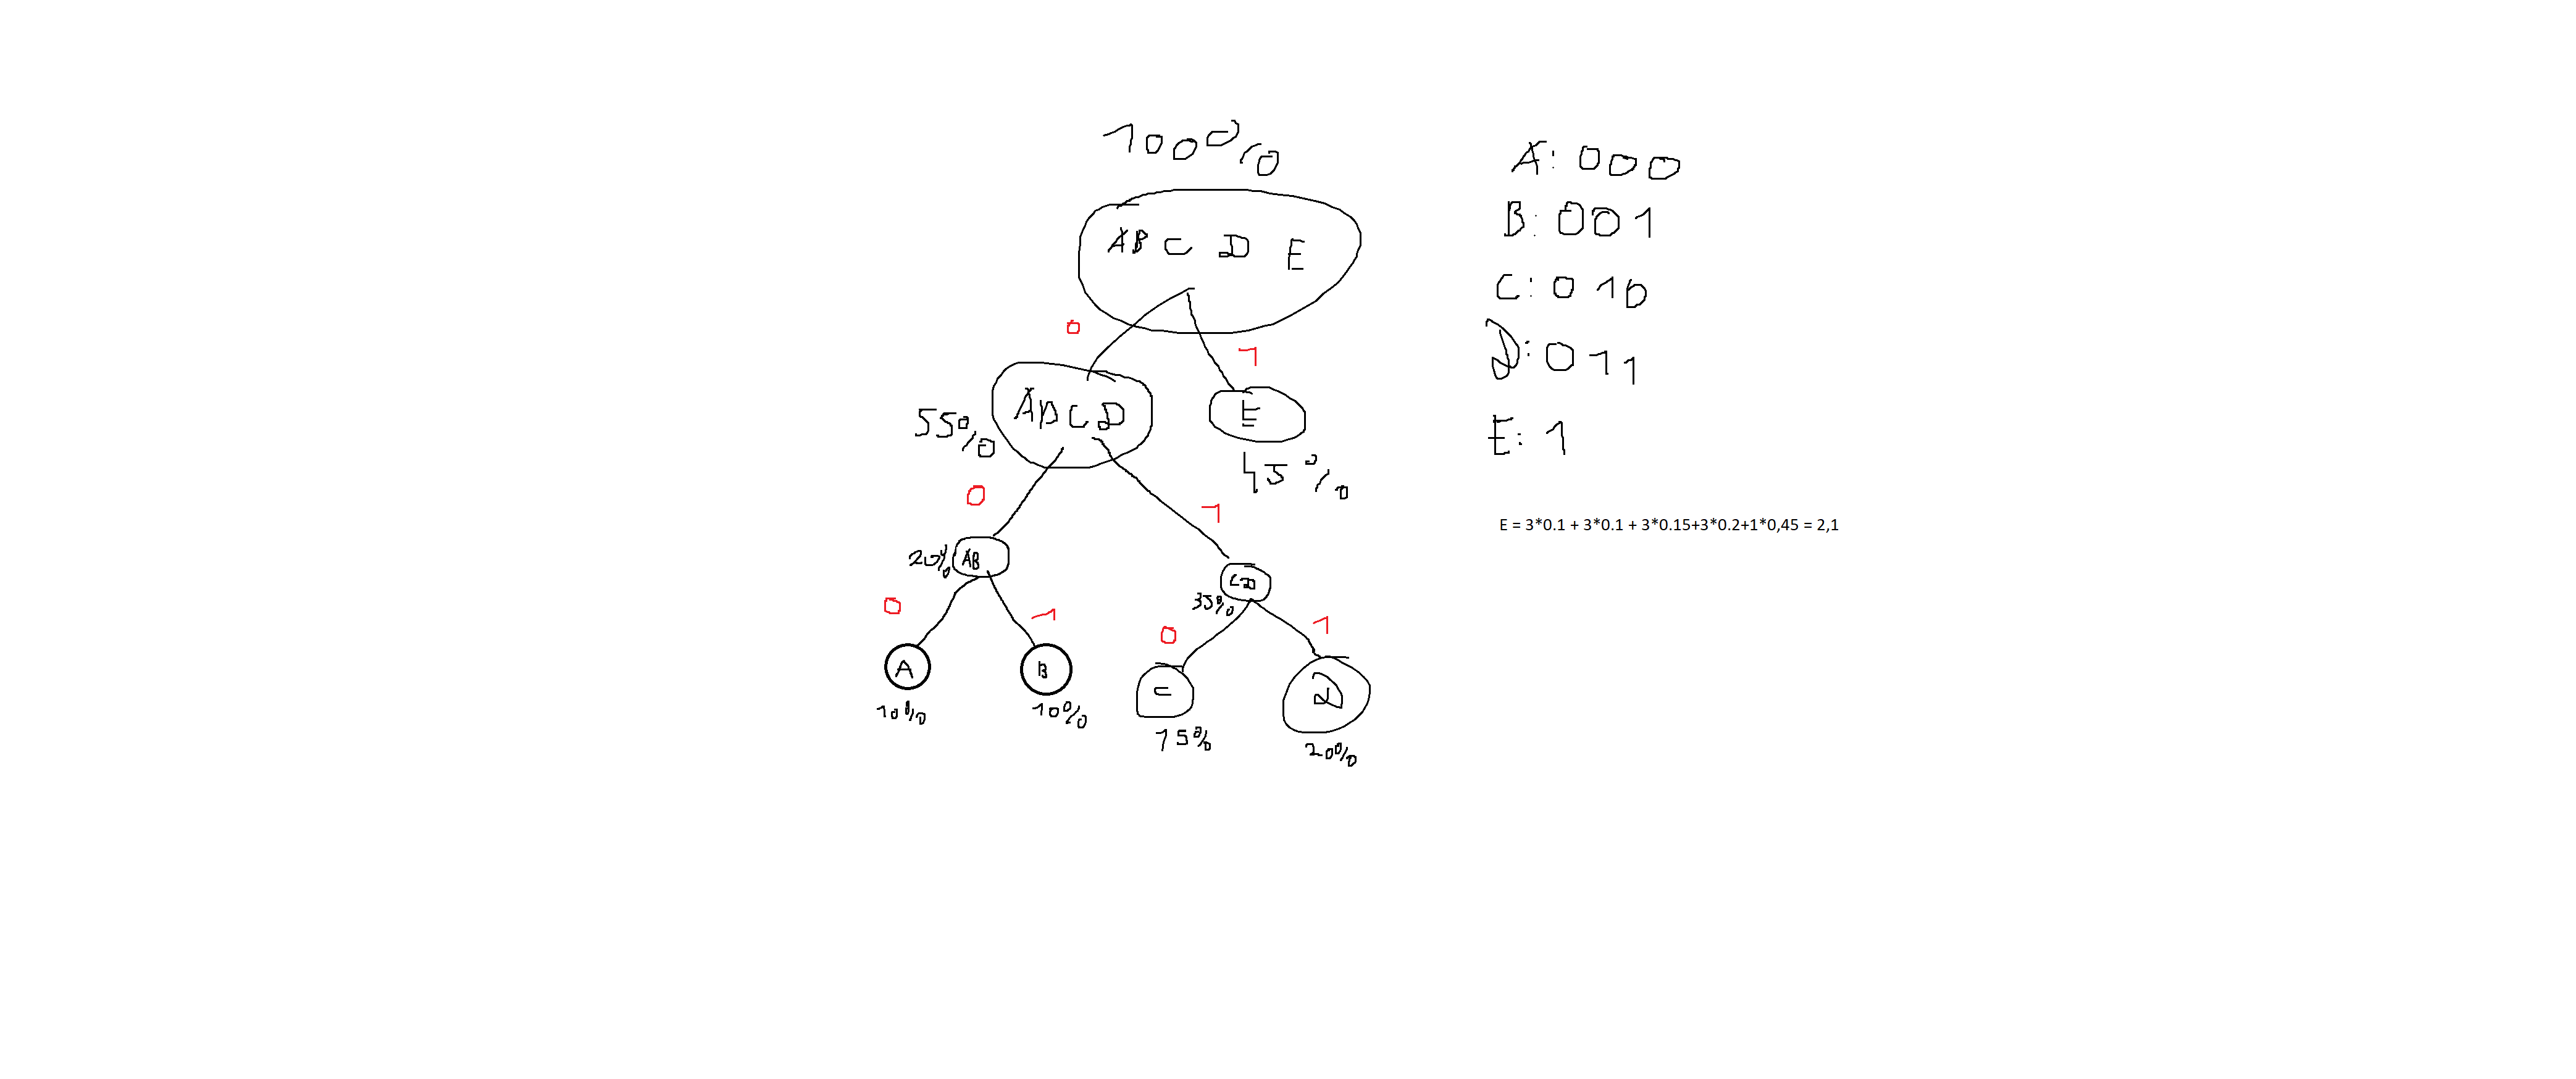 100%
AB C D E
0
1
ABCD
E
55%
45%
0
1
20%
AB
CD
35%
0
1
0
1
A
B
C
D
10%
10%
15%
20%
A: 000
B: 001
C: 010
D: 011
E: 1
E = 3*0.1 + 3*0.1 + 3*0.15+3*0.2+1*0,45 = 2,1